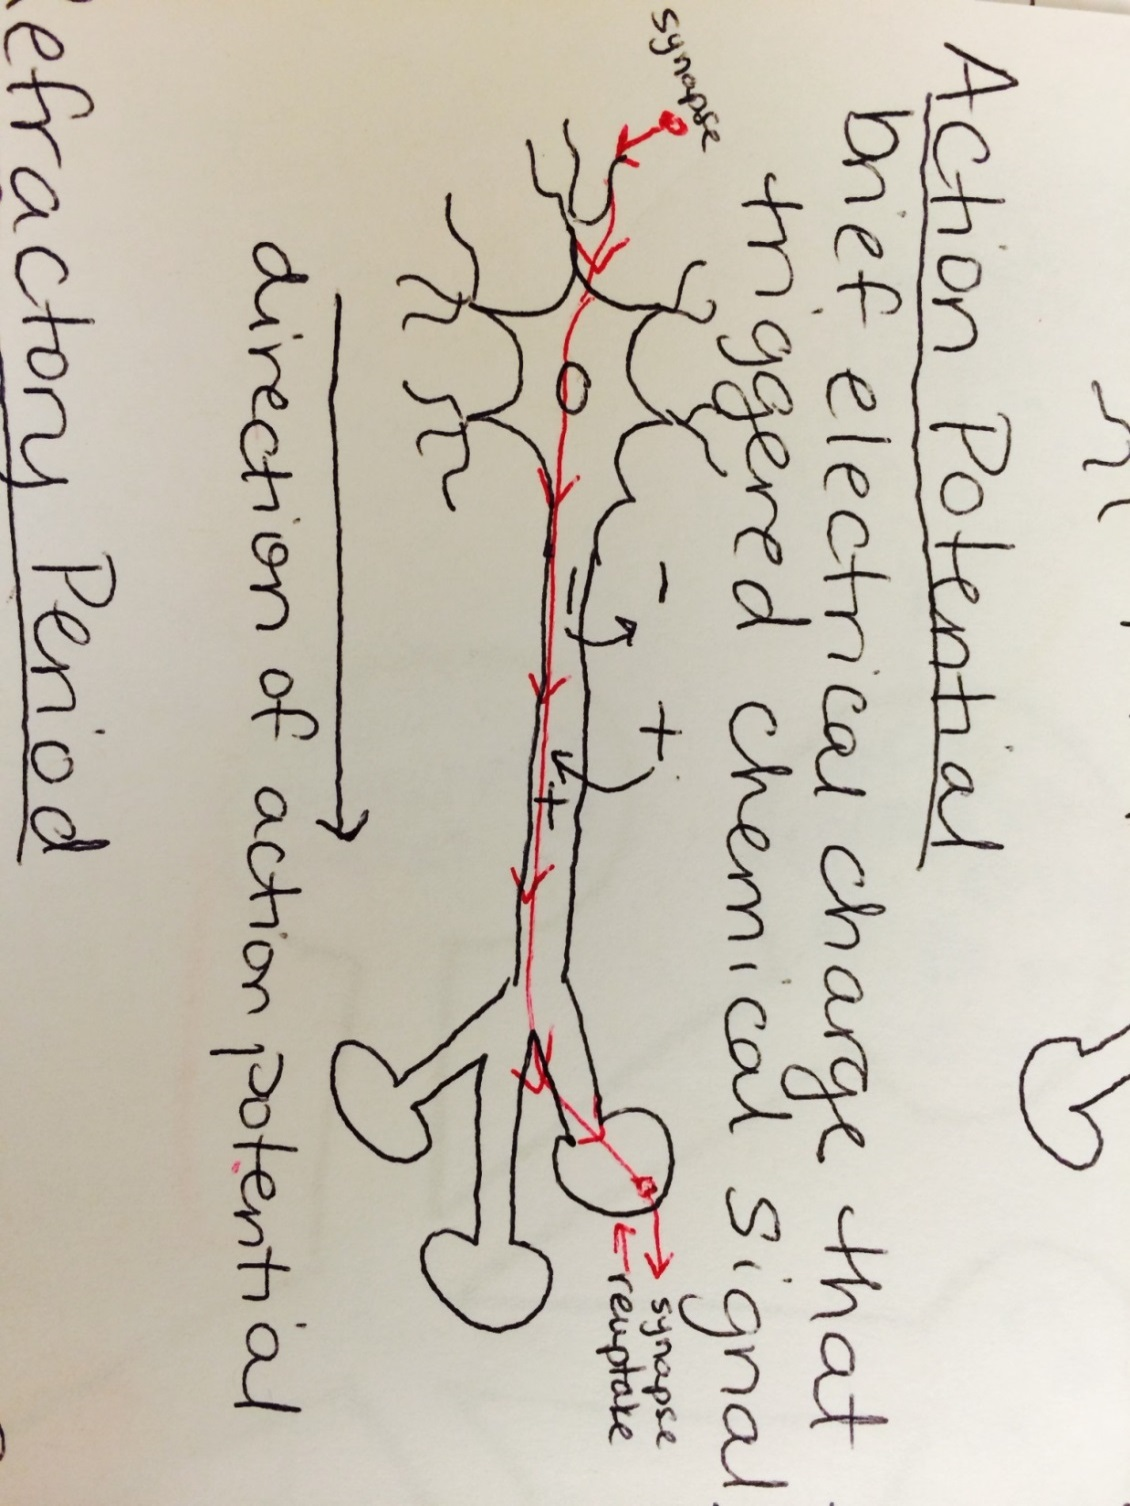 Action Potential
brief electrical charge that
triggered chemical signal
synapse
- +
= +
synapse
reuptake
direction of action potential
Refractory Period